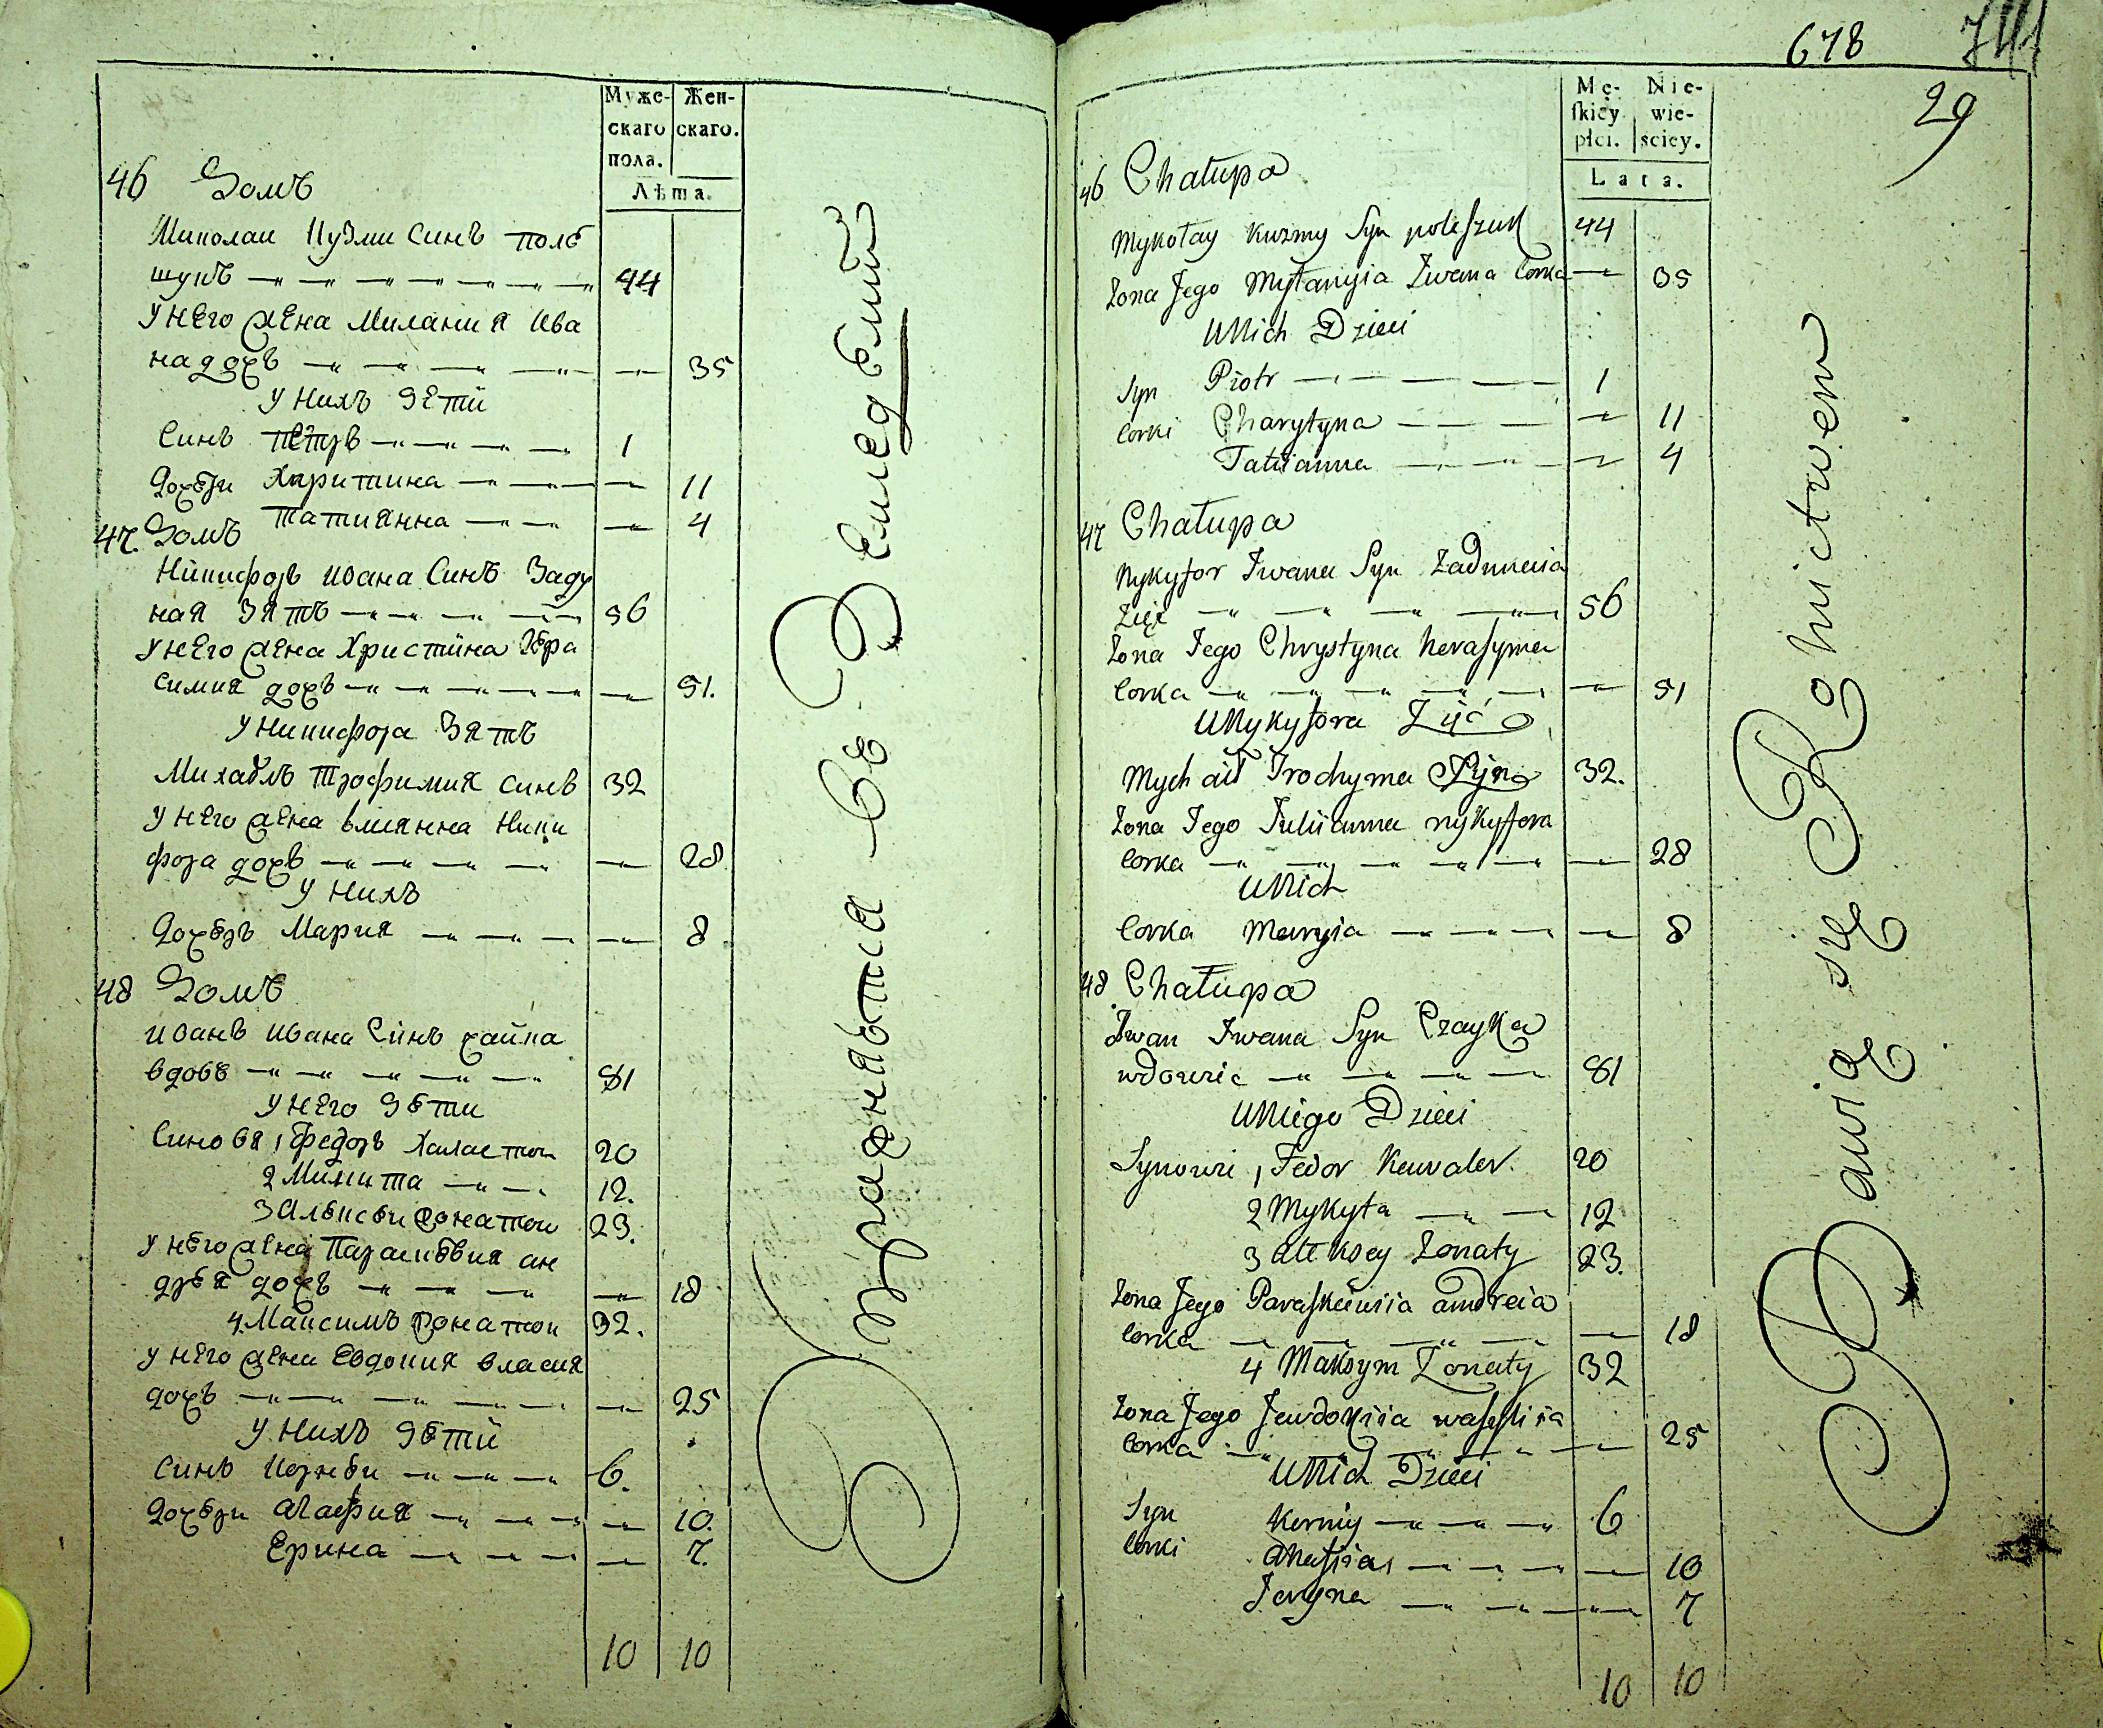 Муже-
скаго
пола.
Жен-
скаго.
Лѣта.
46 Домъ
Миколаи Кузми Синъ поле
шукъ 44
У него жена Милания Ива
на дочъ 35
У нихъ дети
Синъ Петръ 1
Дочери Харитина 11
Татиянна 4
47. Домъ
Никифоръ Ивана Синъ Заду
ная зять 56
У него жена Христина Гера
симия дочъ 51.
У Никифора Зять
Михаилъ Трофимия синъ 32
У него жена Улиянна Ники
фора дочъ 28
У нихъ
Дочеръ Мария 8
48 Домъ
Иванъ Ивана Синъ Чайка
вдовъ 81
У него дети
Синовя 1 Федоръ Халастои 20
2 Микита 12.
3 Алексеи жонатои 23.
У него жена Параскевия Ан
дрея дочъ 18
4. Максимъ жонатои 32.
У него жена Евдокия Власия
дочъ 25
У нихъ дети
Синъ Корнеи 6.
Дочери Агафия 10.
Ерина 7.
10 10
Упражняются Въ Земледелии
678
29
Mę-
skiey
płci.
Nie-
wie-
sciey.
Lata.
46 Chałupa
Mykołay Kuzmy Syn poleszuk 44
Zona Jego Myłanyia Iwana Corka 35
U Nich Dzieci
Syn Piotr 1
Corki Charytyna 11
Tatiianna 4
47 Chałupa
Nykyfor Iwana Syn Zadunaia
Zięć 56
Zona Jego Chrystyna Herasyma
Corka 51
U Nykyfora Zięć
Mychaił Trochyma Syn 32.
Zona Jego Juliianna nykyfora
Corka 28
U Nich
Corka Maryia 8
48 Chałupa
Iwan Iwana Syn Czayka
wdowie 81
U Niego Dzieci
Synowie 1 Fedor Kawaler. 20
2 Mykyta 12
3 Ałeksey Zonaty 23.
Zona Jego Paraskiewiia andreia
Corka 18
4 Maksym Zonaty 32
Zona Jego Jewdokiia wasyliia
Corka 25
U Nich Dzieci
Syn Korniy 6
Corki Ahafiia 10
Jaryna 7
10 10
Bawią się Rolnictwem